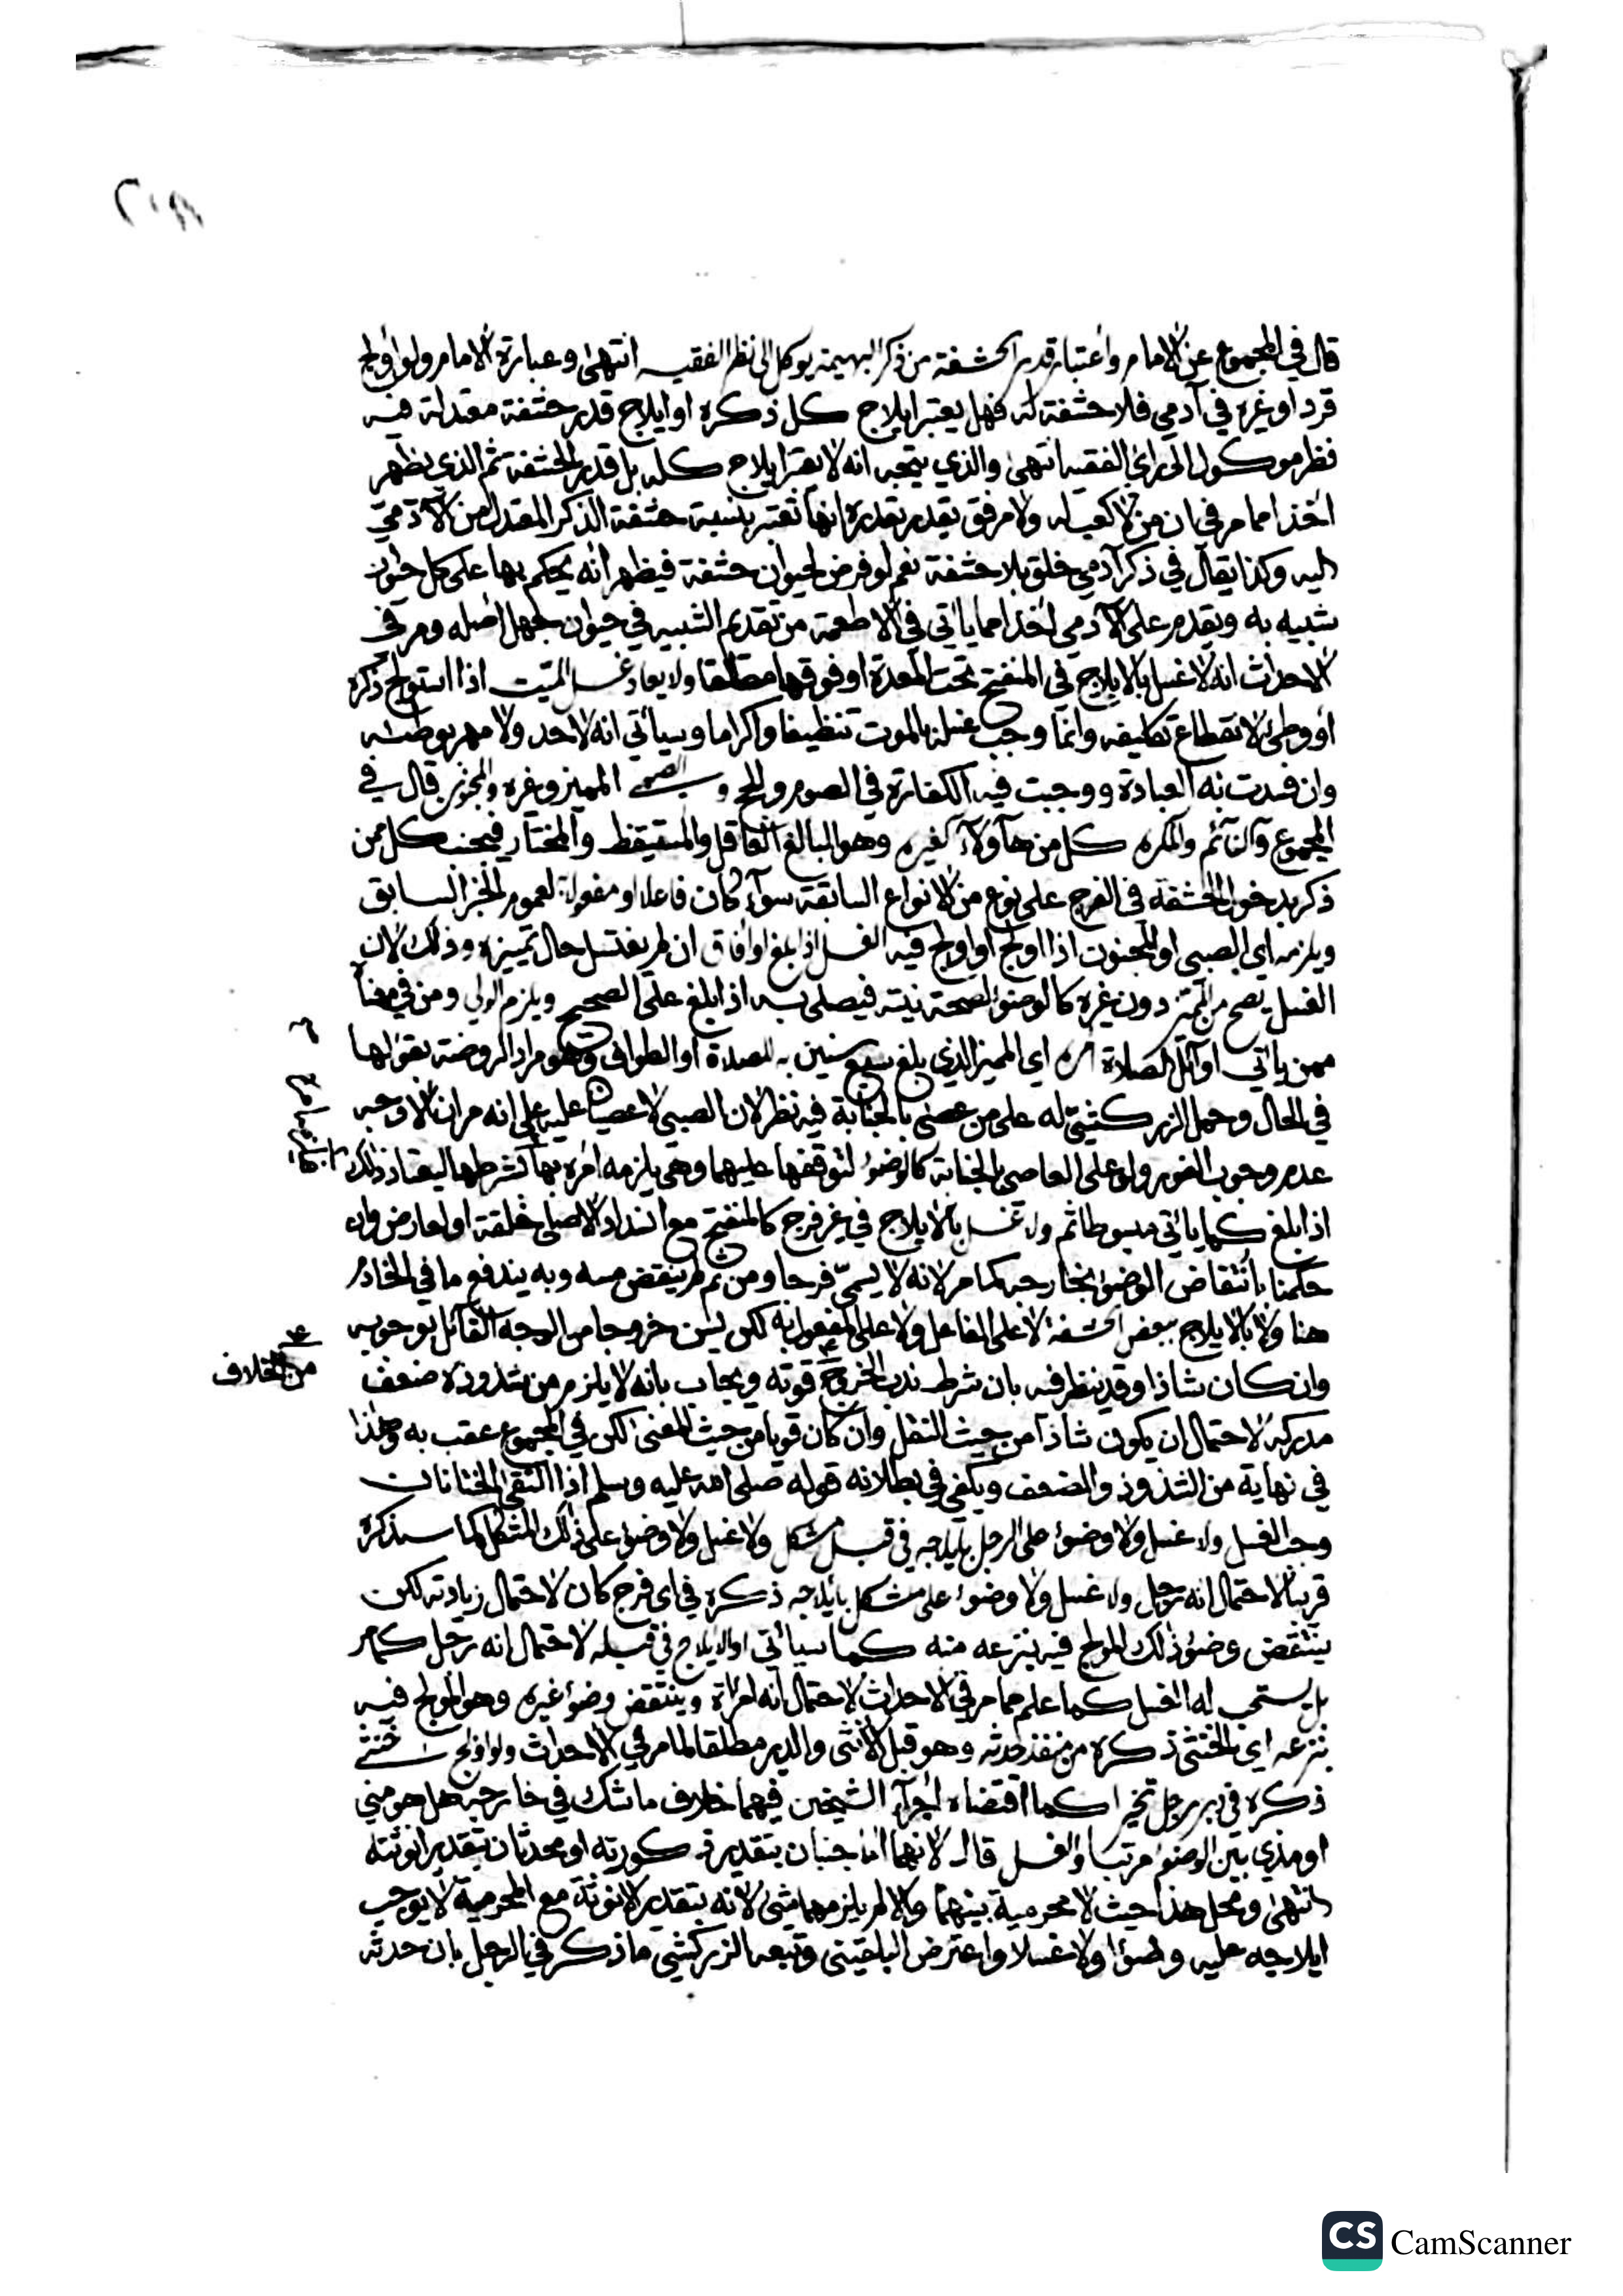 قال في المجموع عن الامام واعتبار قدر الحشفة من ذكر البهيمة يوكل الى نظر الفقيه انتهى وعبارة الامام ولو اولج
قرد او غيره في آدمي فلا حشفة له فهل يعتبر ايلاج كل ذكره او ايلاج قدر حشفة معتدلة فيه
نظر موكول الى راي الفقيه انتهى والذي يتجه انه لا يعتبر ايلاج كله بل قدر الحشفة ثم الذي يظهر
اخذا مما مر في ان من لا كعب له ولا مرفق يقدر بقدره انها تعتبر بنسبة حشفة الذكر المعتدل من الآدمي
اليه وكذا يقال في ذكر آدمي خلق بلا حشفة نعم لو فرض لحيوان حشفة فيظهر انه يحكم بها على كل حيوان
شبيه به ويقدم على الآدمي اخذا مما ياتي في الاطعمة من تقديم الشبيه في حيوان جهل اصله ومر في
الاحداث انه لا غسل بالايلاج في المنفتح تحت المعدة او فوقها مطلقا ولا يعاد غسل الميت اذا استولج ذكره
او وطئ لانقطاع تكليفه وانما وجب غسله بالموت تنظيفا واكراما وسياتي انه لا حد ولا مهر بوطئه
وان فسدت به العبادة ووجبت فيه الكفارة في الصوم والحج و الصبي المميز وغيره والمجنون قال في
المجموع والنائم والمكره كل من هآولاء كغيره وهو البالغ العاقل والمستيقظ والمختار فيجنب كل ممن
ذكر بدخول الحشفة في الفرج على نوع من الانواع السابقة سواء كان فاعلا او مفعولا لعموم الخبر السابق
ويلزمه اي الصبي او المجنون اذا اولج او اولج فيه الغسل اذا بلغ او افاق ان لم يغتسل حال تميزه وذلك لان
الغسل يصح من المميز دون غيره كالوضوء لصحة نيته فيصلي به اذا بلغ على الصحيح ويلزم الولي ومن في معناه
ممن ياتي اوائل الصلاة امره اي المميز الذي بلغ سبع سنين به للصلاة او الطواف وهو مراد الروضة بقولها
في الحال وحمل الزركشي له على من عصى بالجنابة فيه نظر لان الصبي لا عصيان عليه على انه مر ان الاوجه
عدم وجوب الفور ولو على العاصي بالجنابة كالوضوء لتوقفها عليهما وهي يلزمه امره بها كشرطها ليعتاد ذلك
اذا بلغ كما ياتي مبسوطا ثم ولا غسل بالايلاج في غير فرج كالمنفتح مع انسداد الاصلي خلقة او لعارض وان
حكمنا بانتقاض الوضوء بخارجه كما مر لانه لا يسمى فرجا ومن ثم لم ينقض مسه وبه يندفع ما في الخادم
هنا ولا بالايلاج ببعض الحشفة لا على الفاعل ولا على المفعول به لكن يسن خروجا من الوجه القائل بوجوبه
وان كان شاذا وقد ينظر فيه بان شرط ندب الخروج قوته ويجاب بانه لا يلزم من شذوذه ضعف
من الخلاف
مدركه لاحتمال ان يكون شاذا من حيث النقل وان كان قويا من حيث المعنى لكن في المجموع عقب به وهذا
في نهاية من الشذوذ والضعف ويكفي في بطلانه قوله صلى الله عليه وسلم اذا التقى الختانان
وجب الغسل ولا غسل ولا وضوء على الرجل بايلاجه في قبل مشكل ولا غسل ولا وضوء على ذلك المشكل كما سيذكره
قريبا لاحتمال انه رجل ولا غسل ولا وضوء على مشكل بايلاجه ذكره في اي فرج كان لاحتمال زيادته لكن
ينتقض وضوء ذلك المولج فيه بنزعه منه كما سياتي او الايلاج في قبله لاحتمال انه رجل كما مر
بل يستحب له الغسل كما علم مما مر في الاحداث لاحتمال انه امراة وينتقض وضوء غيره وهو المولج فيه
بنزعه اي الخنثى ذكره من منفذ حدثه وهو قبل الانثى والدبر مطلقا لما مر في الاحداث ولو اولج خنثى
ذكره في دبر رجل تخيرا كما اقتضاه اجراء الشيخين فيهما خلاف ما شك في خارجه هل هو مني
او مذي بين الوضوء مرتبا والغسل قال لانهما اما جنبان بتقدير ذكورته او محدثان بتقدير انوثته
انتهى ومحل هذا حيث لا محرمية بينهما والا لم يلزمهما شيء لانه بتقدير الانوثة مع المحرمية لا يوجب
ايلاجه عليه وضوءا ولا غسلا واعترض البلقيني وتبعه الزركشي ما ذكر في الرجل بان حدثه
CS CamScanner